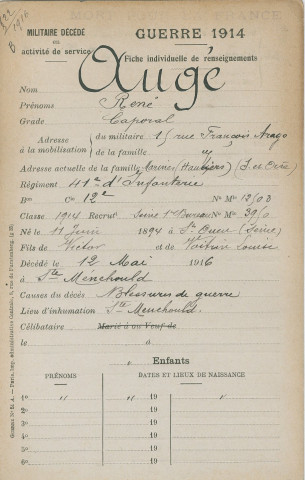 522
B 1916
MORT POUR LA FRANCE
MILITAIRE DÉCÉDÉ
ou
activité de service
GUERRE 1914
Fiche individuelle de renseignements
Nom Augé
Prénoms René
Grade Caporal
Adresse à la mobilisation du militaire 15 rue François Arago
de la famille "
Adresse actuelle de la famille
Régiment 41e d'Infanterie
Bon Cie 12e No Mle 12/03
Classe 1914 Recrut Seine 1er Bureau No Mle 39/0
Né le 11 Juin 1894 à St Ouen (Seine)
Fils de Victor et de Voitrin Louise
Décédé le 12 Mai 1916
à Ste Ménehould
Causes du décès Blessures de guerre
Lieu d'inhumation Ste Menehould
Célibataire Marié à ou Veuf de
le " à "
Enfants
PRÉNOMS DATES ET LIEUX DE NAISSANCE
1o " " 19 " "
2o 19
3o 19
4o 19
5o 19
6o 19